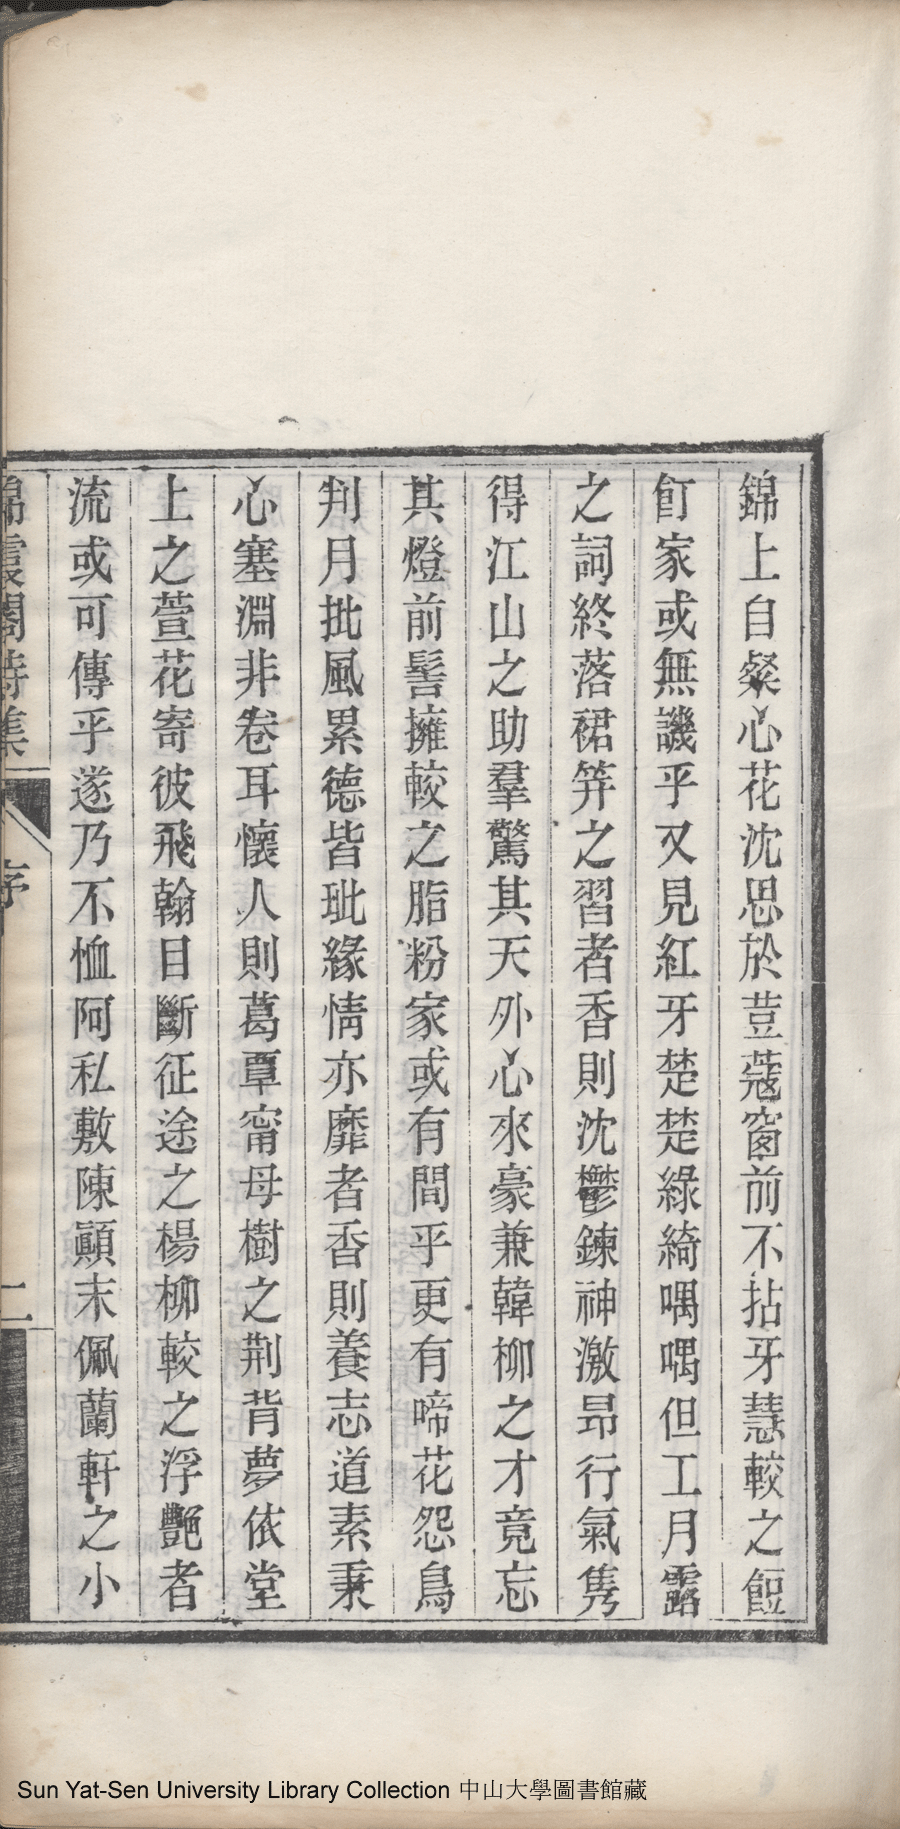 錦上自粲心花沈思於荳蔻窗前不拈牙慧較之餖
飣家或無譏乎又見紅牙楚楚綠綺喁喁但工月露
之詞終落裙笄之習者香則沈鬱鍊神激昂行氣雋
得江山之助羣驚其天外心來豪兼韓柳之才竟忘
其燈前髻擁較之脂粉家或有間乎更有啼花怨鳥
判月批風累德皆玼緣情亦靡者香則養志道素秉
心塞淵非卷耳懷人則葛覃甯母樹之荆背夢依堂
上之萱花寄彼飛翰目斷征途之楊柳較之浮艷者
流或可傳乎遂乃不恤阿私敷陳顚末佩蘭軒之小
錦霞閣詩集 序 二
Sun Yat-Sen University Library Collection 中山大學圖書館藏